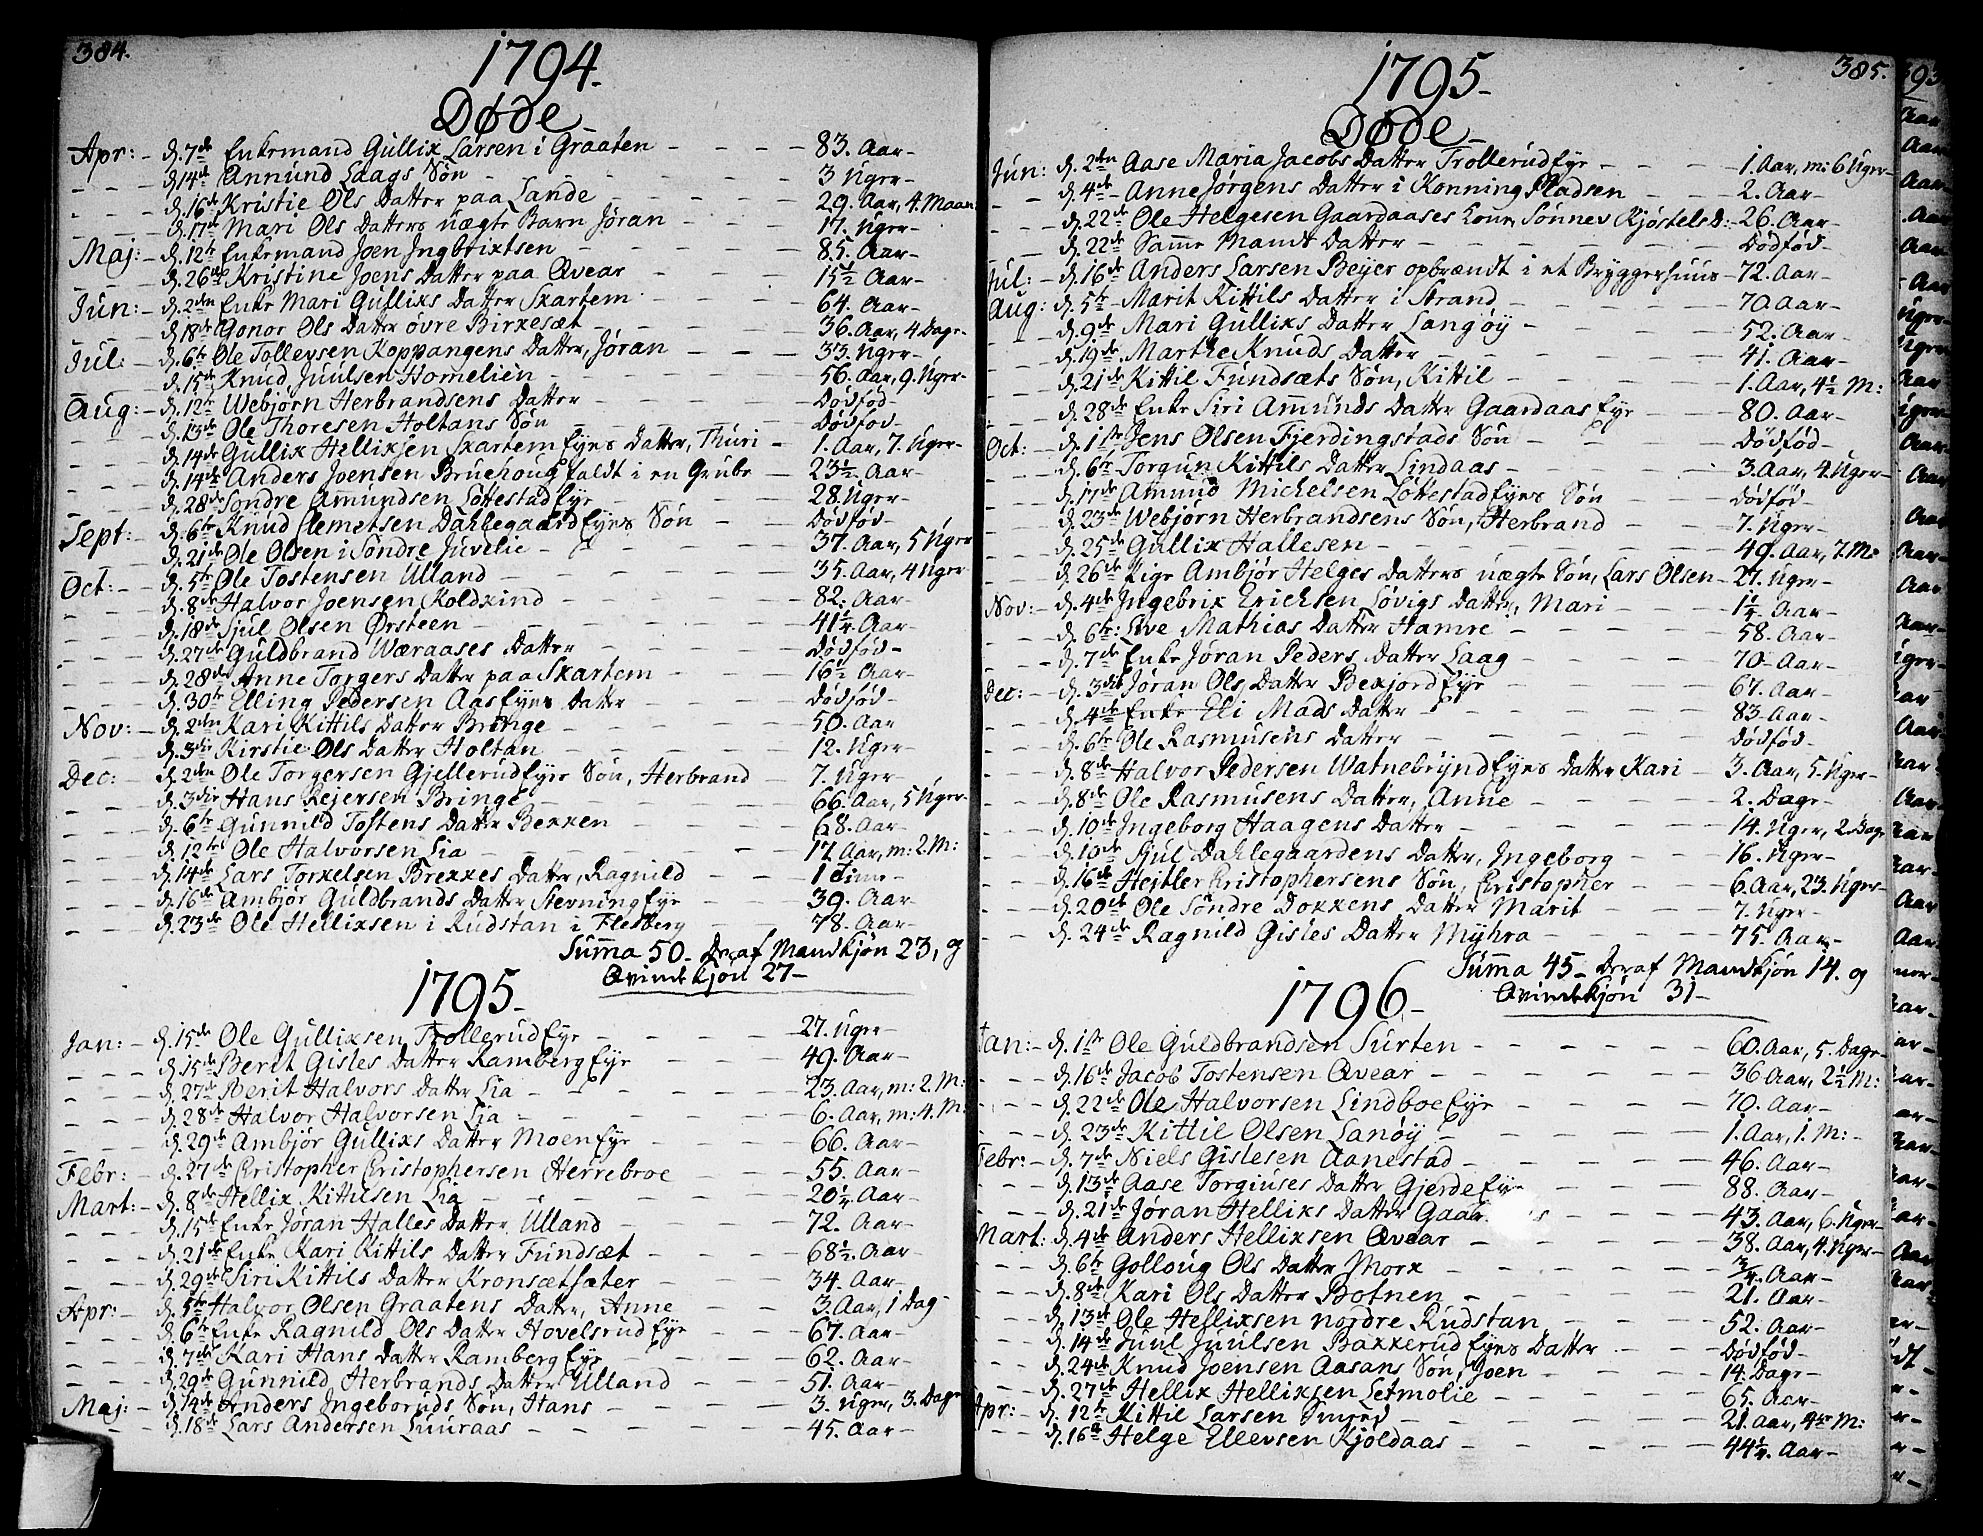 384.
1794.
Døde
Apr: - d. 7de Enkemand Gullix Larsen i Graaten - - - - 83. Aar -
- - - d. 14de Annund Laags Søn - - - - 3 Uger -
- - - d. 16de Kristie Ols Datter paa Lande - - - 29. Aar, 4. Maan:
- - - d. 17de Mari Ols Datters uægte Barn Jøran - - - 17. Uger -
Maj: - d. 12te Enkemand Joen Ingbrixtsen - - - 85. Aar -
- - - d. 26de Kristine Joens Datter paa Qvear - - - 15½ Aar -
Jun: - d. 2den Enke Mari Gullixs Datter Skartem - - - 64. Aar -
- - - d. 18de Gonor Ols Datter øvre Birkesæt - - - 36. Aar, 4 Dage -
Jul: - d. 6te Ole Tollevsen Koppangens Datter, Jøran - - - 33. Uger -
- - - d. 15de Knud Juulsen Homelien - - - 56. Aar, 9. Uger -
Aug: - d. 12te Webjørn Herbrandsens Datter - - - Dødfød -
- - - d. 13de Ole Thoresen Holtans Søn - - - Dødfød -
- - - d. 14de Gullix Hellixsen Skartem Eyes Datter, Thuri - 1. Aar, 7. Uger -
- - - d. 14de Anders Joensen Bruehoug faldt i en Grube - 23½ Aar -
- - - d. 28de Søndre Amundsen Løttestad Eye - - - 28. Uger -
Sept: - d. 6te Knud Clemetsen Dahlegaard Eyes Søn - - Dødfød -
- - - d. 21de Ole Olsen i Søndre Juvelie - - - 37. Aar, 5 Uger
Oct: - d. 5te Ole Tostensen Ulland - - - 35. Aar, 4 Uger
- - - d. 8de Halvor Joensen Koldkind - - - 82. Aar -
- - - d. 18de Sjul Olsen Ørsteen - - - 41¼ Aar -
- - - d. 27de Guldbrand Wæraases Datter - - - Dødfød -
- - - d. 28de Anne Torgers Datter paa Skartem - - - 16½ Aar -
- - - d. 30te Elling Pedersen Aas Eyes Datter - - - Dødfød -
Nov: - d. 2den Kari Kittils Datter Bringe - - - 50. Aar
- - - d. 3die Kirstie Ols Datter Holtan - - - 12. Uger -
Dec: - d. 2den Ole Torgersen Gjellerud Eyes Søn, Herbrand 7. Uger
- - - d. 3die Hans Rejersen Bringe - - - 66. Aar, 5 Uger -
- - - d. 6te Gunnild Tostens Datter Bekken - - - 68. Aar -
- - - d. 12te Ole Halvorsen Lia - - - 17 Aar, m: 2. M:
- - - d. 14de Lars Torkelsen Brekkes Datter, Ragnild - - 1 Time -
- - - d. 16de Ambjør Guldbrands Datter Stevning Eye - - 39. Aar -
- - - d. 23de Ole Hellixsen i Rudstan i Flesberg - - 78. Aar -
Summa 50 - Deraf Mandkjøn 23, og
Qvindekjøn 27 -
1795.
Jan: - d. 15de Ole Gullixsen Trollerud Eye - - - 27. Uger -
- - - d. 15de Berit Gisles Datter Ramberg Eye - - - 49. Aar -
- - - d. 27de Berit Halvors Datter Lia - - - 23. Aar, m: 2. M:
- - - d. 28de Halvor Halvorsen Lia - - - 6. Aar, m: 4. M:
- - - d. 29de Ambjør Gullixs Datter Moen Eye - - - 66. Aar -
Febr: - d. 27de Christopher Christophersen Herrebroe - - - 55. Aar -
Mart: - d. 8de Hellix Kittilsen Lia - - - 20¼ Aar -
- - - d. 15de Enke Jøran Halles Datter Ulland - - - 72. Aar -
- - - d. 21de Enke Kari Kittils Datter Fundsæt - - - 68½ Aar -
- - - d. 29de Siri Kittils Datter Kronsætsæter - - - 34. Aar -
Apr: - d. 5te Halvor Olsen Graatens Datter, Anne - - 3. Aar, 1 Dag -
- - - d. 6te Enke Ragnild Ols Datter Hovelsrud Eye - - 67. Aar -
- - - d. 7de Kari Hans Datter Ramberg Eye - - - 62. Aar -
- - - d. 29de Gunnild Herbrands Datter Ulland - - - 51. Aar -
Maj: - d. 14de Anders Ingeboruds Søn, Hans - - - 3. Uger, 3. Dage
- - - d. 18de Lars Andersen Luuraas - - - 45. Aar -
385.
1795 -
Døde -
Jun: d. 2den Aase Maria Jacobs Datter Trollerud Eye - - - 1. Aar, m: 6 Uger -
- - d. 4de Anne Jørgens Datter i Konning Pladsen - - 2. Aar -
- - - d. 22de Ole Helgesen Gaardaases Kone, Sønnev Kjøstels D: - 26. Aar -
- - - d. 22de Samme Mands Datter - - - Dødfød -
Jul: - d. 16de Anders Larsen Beyer opbrændt i et Bryggerhuus - 72. Aar -
Aug: d. 5te Marit Kittils Datter i Strand - - - 70. Aar -
- - - d. 9de Mari Gullixs Datter Langøy - - - 52. Aar -
- - - d. 19de Marthe Knuds Datter - - - 41. Aar -
- - - d. 21de Kittil Fundsæts Søn, Kittil - - - 1. Aar, 4½ M:
- - - d. 28de Enke Siri Amunds Datter Gaardaas Eye - - 80. Aar -
Oct: d. 1ste Jens Olsen Fjerdingstads Søn - - - Dødfød -
- - - d. 6te Torgun Kittils Datter Lindaas - - - 3. Aar, 4. Uger -
- - - d. 17de Amund Michelsen Løttestad Eyes Søn - - Dødfød -
- - - d. 23de Webjørn Herbrandsens Søn, Herbrand - - 7. Uger -
- - - d. 25de Gullix Hallesen - - - 49. Aar, 7. M:
- - - d. 26de Pige Ambjør Helges Datters uægte Søn, Lars Olsen - 27. Uger -
Nov: - d. 4de Ingebrix Erichsen Løvigs Datter, Mari - - - 1¼ Aar -
- - - d. 6te Live Mathias Datter Hamre - - - 58. Aar -
- - - d. 7de Enke Jøran Peders Datter Laag - - - 70. Aar -
Dec: - d. 3die Jøran Ols Datter Bekjord Eye - - - 67. Aar -
- - - d. 4de Enke Eli Mads Datter - - - 83. Aar -
- - - d. 6te Ole Rasmusens Datter - - - Dødfød -
- - - d. 8de Halvor Pedersen Watnebrynd Eyes Datter Kari - 3. Aar, 5. Uger -
- - - d. 8de Ole Rasmusens Datter, Anne - - - 2. Dage -
- - - d. 10de Ingeborg Haagens Datter - - - 14. Uger, 2. Dage
- - - d. 10de Sjul Dahlegaardens Datter, Ingeborg - - 16. Uger -
- - - d. 16de Hejtler Christophersens Søn, Christopher - - 6. Aar, 23. Uger -
- - - d. 20de Ole Søndre Dokkens Datter Marit - - - 7. Uger -
- - - d. 24de Ragnild Gisles Datter Myhra - - - 75. Aar -
Summa 45 - Deraf Mandkjøn 14. og
Qvindekjøn 31 -
1796 -
Jan: - d. 1ste Ole Guldbrandsen Surten - - - 60. Aar, 5. Dage -
- - - d. 16de Jacob Tostensen Qvear - - - 36 Aar, 2½ M:
- - - d. 22de Ole Halvorsen Lindboe Eye - - - 70. Aar -
- - - d. 23de Kittil Olsen Lanøy - - - 1. Aar, 1. M: -
Febr: - d. 7de Niels Gislesen Aanestad - - - 46. Aar -
- - - d. 13de Aase Torgiuses Datter Gjerde Eye - - - 88. Aar -
- - - d. 21de Jøran Hellixs Datter - - - 43. Aar, 6. Uger -
Mart: d. 4de Anders Hellixsen Qvear - - - 38. Aar, 4. Uger -
- - - d. 6te Golloug Ols Datter Mork - - - ¾. Aar -
- - - d. 8de Kari Ols Datter Botnen - - - 21. Aar -
- - - d. 13de Ole Hellixsen nordre Rudstan - - - 52. Aar -
- - - d. 14de Juul Juulsen Bakkerud Eyes Datter - - - Dødfød -
- - - d. 24de Knud Joensen Aasans Søn, Joen - - - 14. Dage -
- - - d. 27de Hellix Hellixsen Letmolie - - - 65. Aar -
Apr: - d. 12te Kittil Larsen - - - 21. Aar, M:
- - - d. 16de Helge Ellevsen Kjoldaas - - - 44¼. Aar -